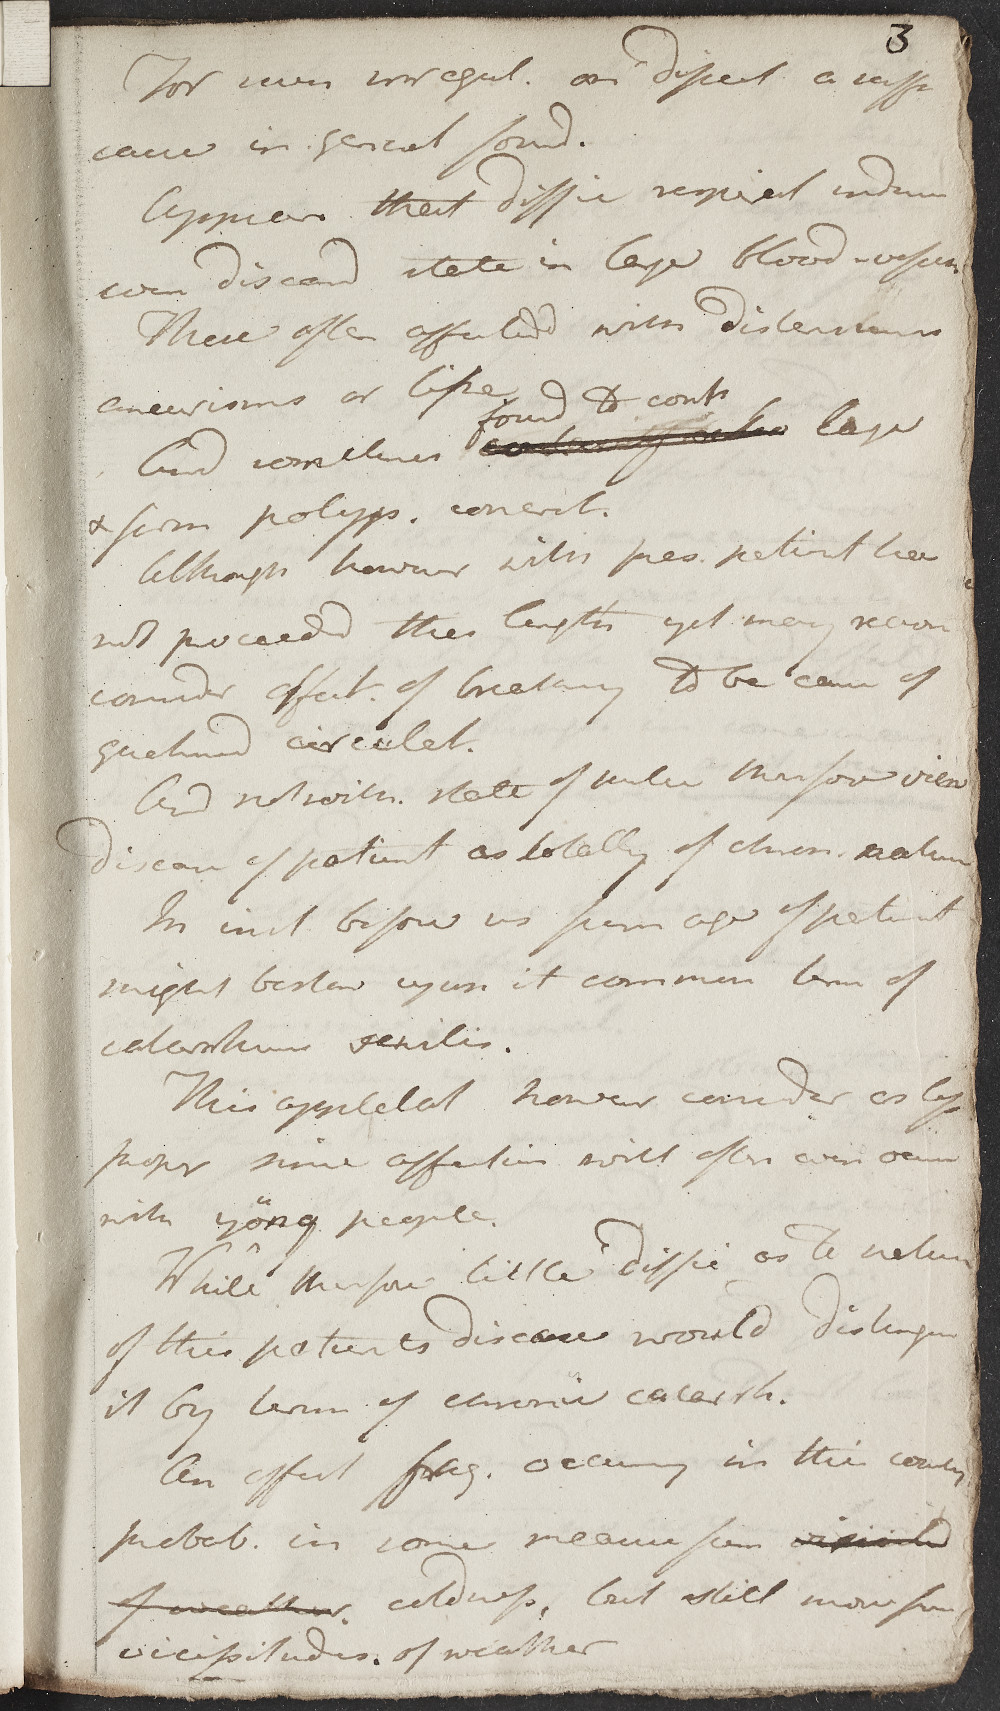 3
For even irregul. on dissect a suffi
cause in general found.
Appears that diffic respirat induc
even diseasd state in large blood-vessels
These often affectedd with distensions
aneurisms or like
found to cont
And sometimes large
& firm polyps. concret.
Although however with pres. patient has
not proceedd this length yet many reason
consider affect. of breathing to be cause of
circulat.
And notwith. state of pulse therefore view
disease of patient as totally of chron. nature
In inst before us from age of patient
might bestow upon it common term of
catarrhus senilis.
This appelat however consider as less
proper since affection will often even occur
with young people.
While therefore little diffic as to nature
of this patients disease would distinguis
it by term of chronic catarrh.
An affect freq. occuring in this country
probab. in some measure from vicissitud
of weather. coldness, but still more from
vicissitudes. of weather